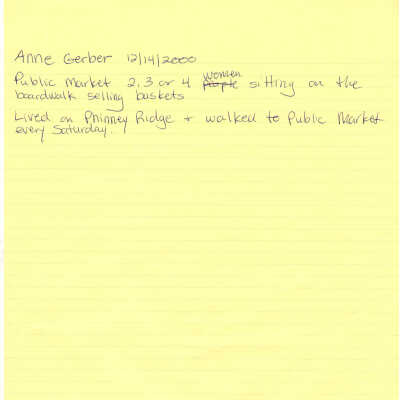 Anne Gerber 12/14/2000
Public Market 2, 3 or 4 women people sitting on the
boardwalk selling baskets
Lived on Phinney Ridge + walked to Public Market
every Saturday.